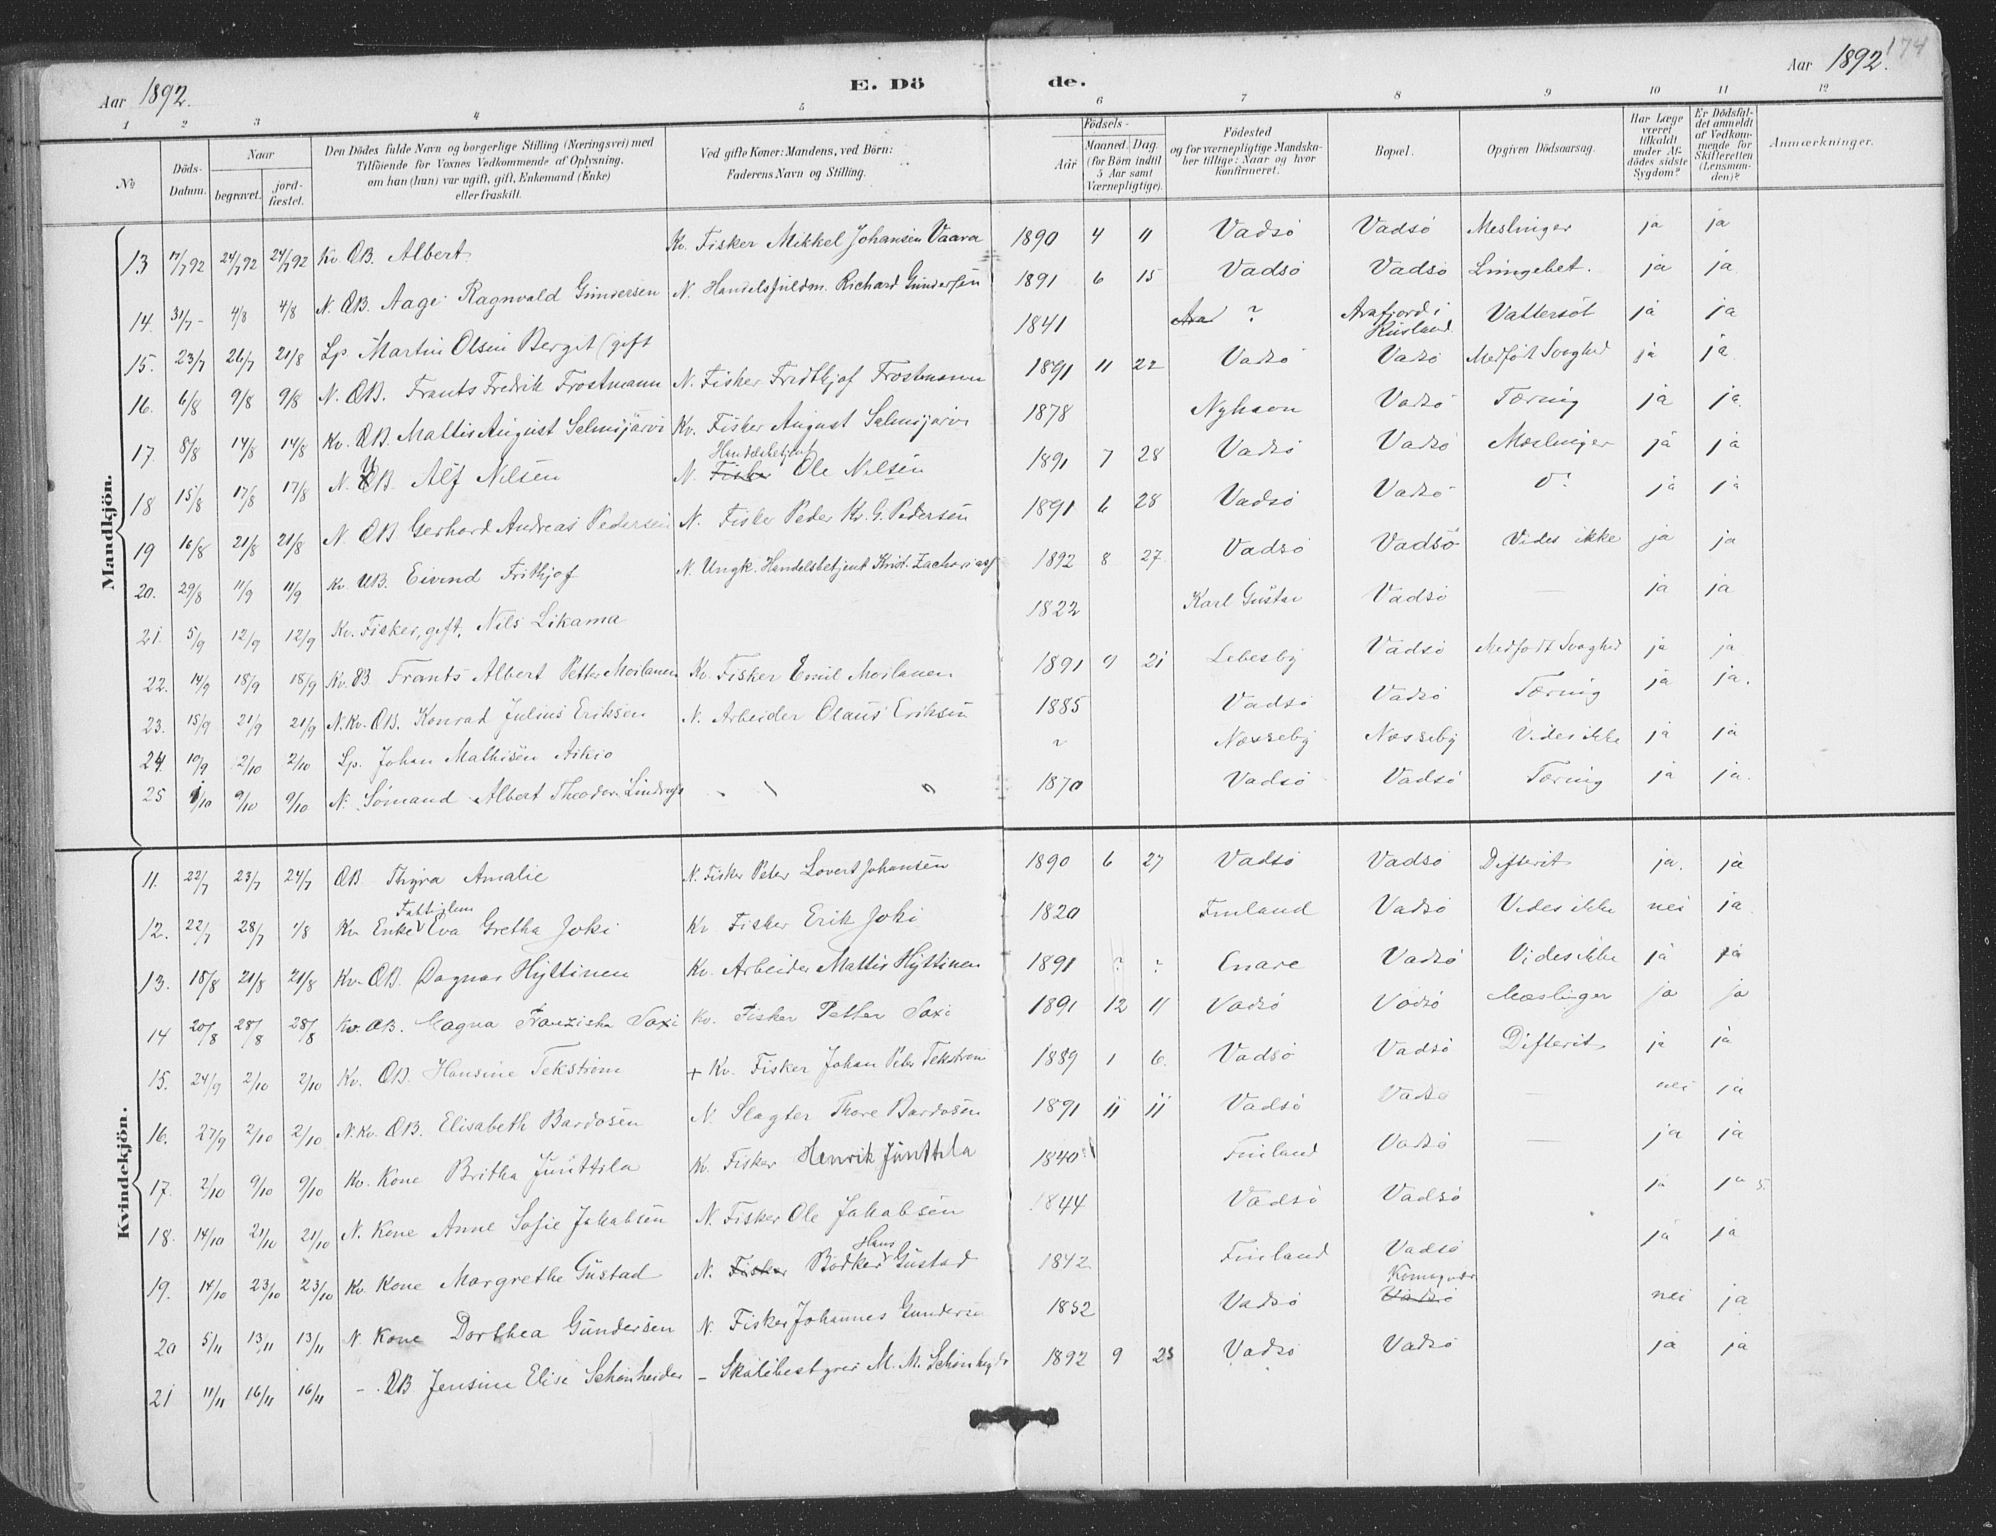 174
Aar 1892. E. Dö de. Aar 1892.
1 2 3 4 5 6 7 8 9 10 11 12
No Döds-Datum. Naar begravet. jord-fæstet. Den Dödes fulde Navn og borgerlige Stilling (Næringsvei) med Tilföiende for Voxnes Vedkommende af Oplysning, om han (hun) var ugift, gift, Enkemand (Enke) eller fraskilt. Ved gifte Koner: Mandens, ved Börn: Faderens Navn og Stilling. Födsels- Aar Maaned. Dag. (for Börn indtil 5 Aar samt Værnepligtige). Födested og for værnepligtige Mandska-ber tillige: Naar og hvor konfirmeret. Bopæl. Opgiven Dödsaarsag. Har Læge været tilkaldt under Af-dödes sidste Sygdom? Er Dödsfal-det anmeldt af Vedkom-mende for Skifteretten (Lensman-den)? Anmærkninger.
Mandkjön.
13 17/7 92 24/7 92 24/7 92 Kv. ÆB. Albert Kv. Fisker Mikkel Johansen Vaara 1890 4 11 Vadsö Vadsö Meslinger ja ja
14. 31/7 - 4/8 4/8 N. ÆB. Aage Ragnvald Gundersen N. Handelsfuldm. Richard Gundersen 1891 6 15 Vadsö Vadsö Lungebet. ja ja
15. 23/7 26/7 21/8 Lp. Martin Olsen Berget (gift 1841 ? Arafjord i Rusland Vattersot ja ja
16. 6/8 9/8 9/8 N. ÆB. Frants Fredrik Frostmann N. Fisker Fridthjof Frostmann 1891 11 22 Vadsö Vadsö Medfödt Svaghed ja ja
17. 8/8 14/8 14/8 Kv. ÆB. Mattis August Salmijärvi Kv. Fisker August Salmijarvi 1878 Nyhavn Vadsö Tæring ja ja
18 15/8 17/8 17/8 N. UB. Alf Nilsen N. Fisker Handelsbetjent Ole Nilsen 1891 7 28 Vadsö Vadsö Mæslinger ja ja
19 16/8 21/8 21/8 N. ÆB Gerhard Andreas Pedersen N. Fisker Peder Kr. G. Pedersen 1891 6 28 Vadsö Vadsö Do ja ja
20. 29/8 11/9 11/9 Kv. UB. Eivind Frithjof N. Ungk. Handelsbetjent Krist. Zachariass 1892 8 27 Vadsö Vadsö Vides ikke ja ja
21. 5/9 12/9 12/9 Kv. Fisker, gift, Nils Likama 1822 Karl Gustav Vadsö — ja ja
22. 14/9 18/9 18/9 Kv. ÆB Frants Albert Petter Moilanen Kv. Fisker Emil Moilanen 1891 9 21 Lebesby Vadsö Medfödt Svaghed ja ja
23. 15/9 21/9 21/9 N. Kv. ÆB. Konrad Julius Eriksen N. Arbeider Olaus Eriksen 1885 Vadsö Vadsö Tæring ja ja.
24. 10/9 2/10 2/10 Lp. Johan Mathisen Aikio ~ Næsseby Næsseby Vides ikke ja ja
25 1/10 9/10 9/10 N. Sömand Albert Theodor Lindrup 1870 Vadsö Vadsö Tæring ja ja
Kvindekjön.
11. 22/7 23/7 24/7 ÆB. Thyra Amalie N. Fisker Peter Lovert Johansen 1890 6 27 Vadsö Vadsö Difterit ja. ja
12. 22/7 28/7 1/8 Kv. Enke Fattiglem Eva Gretha Joki Kv Fisker Erik Joki 1820 Finland Vadsö Vides ikke nei ja
13. 15/8 21/8 21/8 Kv. ÆB. Dagmar Hyltinen Kv. Arbeider Mattis Hyttinen 1891 ? ? Enare Vadsö Vides ikke ja ja
14 20/8 28/8 28/8 Kv. ÆB. Magna Franziska Saxi Kv. Fisker Petter Saxi 1891 12 11 Vadsö Vadsö Mæslinger ja ja
15. 24/9 2/10 2/10 Kv. ÆB. Hansine Tekström + Kv. Fisker Johan Peter Tekström 1889 1 6. Vadsö Vadsö Difterit ja ja
16. 27/9 2/10 2/10 N. Kv. ÆB. Elisabeth Bardosen N. Slagter Thore Bardosen 1891 11 11 Vadsö Vadsö — nei ja
17. 2/10 9/10 9/10 Kv. Kone Britha Junttila Kv. Fisker Henrik Junttila 1840 Finland Vadsö — ja ja
18. 14/10 21/10 21/10 N. Kone Anne Sofie Jakobsen N. Fisker Ole Jakobsen 1844 Vadsö Vadsö ja ja
19. 14/10 23/10 23/10 Kv. Kone Margrethe Gustad N. Fisker Bödker Hans Gustad 1842 Finland Vadsö ja ja
20 5/11 13/11 13/11 N. Kone Dorthea Gundersen N. Fisker Johannes Gundersen 1852 Vadsö Komagvær Vadsö nei ja
21 11/11 16/11 16/11 - ÆB Jensine Elise Schönheider - Skolebestyrer M. M. Schönheyder 1892 9 25 Vadsö Vadsö ja ja